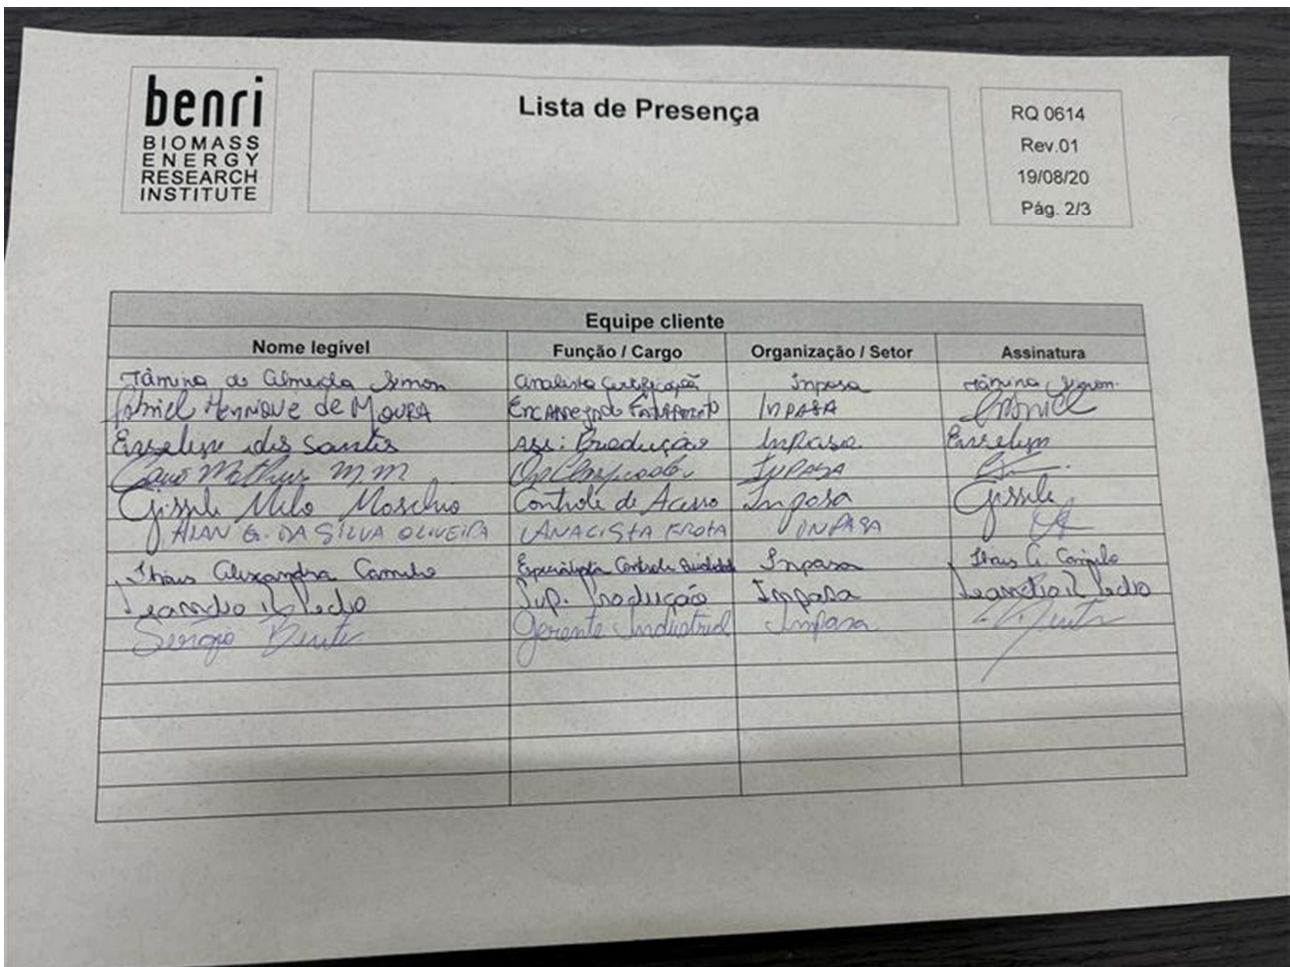 benri
BIOMASS
ENERGY
RESEARCH
INSTITUTE
Lista de Presença
RQ 0614
Rev.01
19/08/20
Pág. 2/3
Equipe cliente
Nome legível Função / Cargo Organização / Setor Assinatura
Tâmina de Almeida Simon Analista Certificação Inpasa Tâmina Simon
Gabriel Henrique de Moura Encarregado Inpasa Gabriel
dos Santos Produção Inpasa
Matheus M. M. Op Inpasa
Gissele Melo Controle de Acesso Inpasa Gissele
ALAN G. DA SILVA OLIVEIRA ANALISTA FROTA INPASA
Thais Alexandra Camilo Especialista Controle Qualidade Inpasa Thais A. Camilo
Leandro Pedro Sup. Produção Inpasa Leandro Pedro
Sergio Gerente Industrial Inpasa